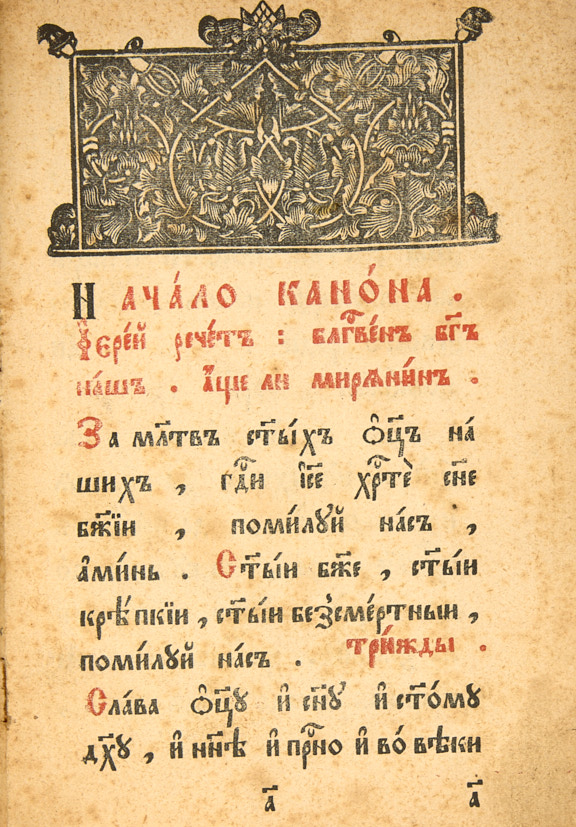 Нача́ло кано́на .
Їере́й рече́тъ : блгⷭ҇ве́нъ бг҃ъ
на́шъ . а҆́ще ли мирѧни́нъ .
За мл҃твъ ст҃ы́хъ ѻ҆ц҃ъ на́
шихъ , гдⷭ҇и і҆се хрⷭ҇тѐ сн҃е
бж҃їи , поми́лꙋй на́съ ,
а҆ми́нь . Ст҃ы́и бж҃е , ст҃ы́и
крѣ́пкїи , ст҃ы́и безсме́ртныи ,
поми́лꙋй на́съ . три́жды .
Сла́ва ѻ҆ц҃ꙋ и҆ сн҃ꙋ и҆ ст҃о́мꙋ
дх҃ꙋ , и҆ нн҃ѣ и҆ прⷭ҇но и҆ во́ вѣки
а҃ а҃